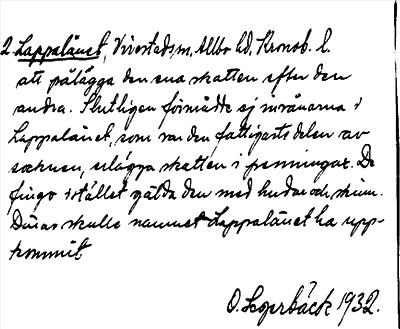 2 Lappalänet, Virestads sn, Allbo hd, Kronob. l.
att pålägga den ena skatten efter den
andra. Slutligen förmådde ej invånarna i
Lappalänet, som var den fattigaste delen av
socknen, utlägga skatten i penningar. De
fingo i stället gälda den med hudar och skinn.
Därav skulle namnet Lappalänet ha upp-
kommit
O. Segerbäck 1932.